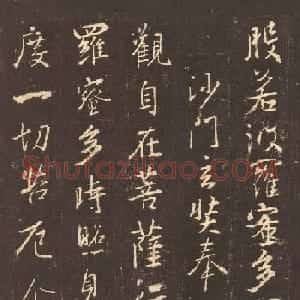 般若波羅蜜多
沙門玄奘奉
觀自在菩薩行
羅蜜多時照見
度一切苦厄舍
Shufazidao.com